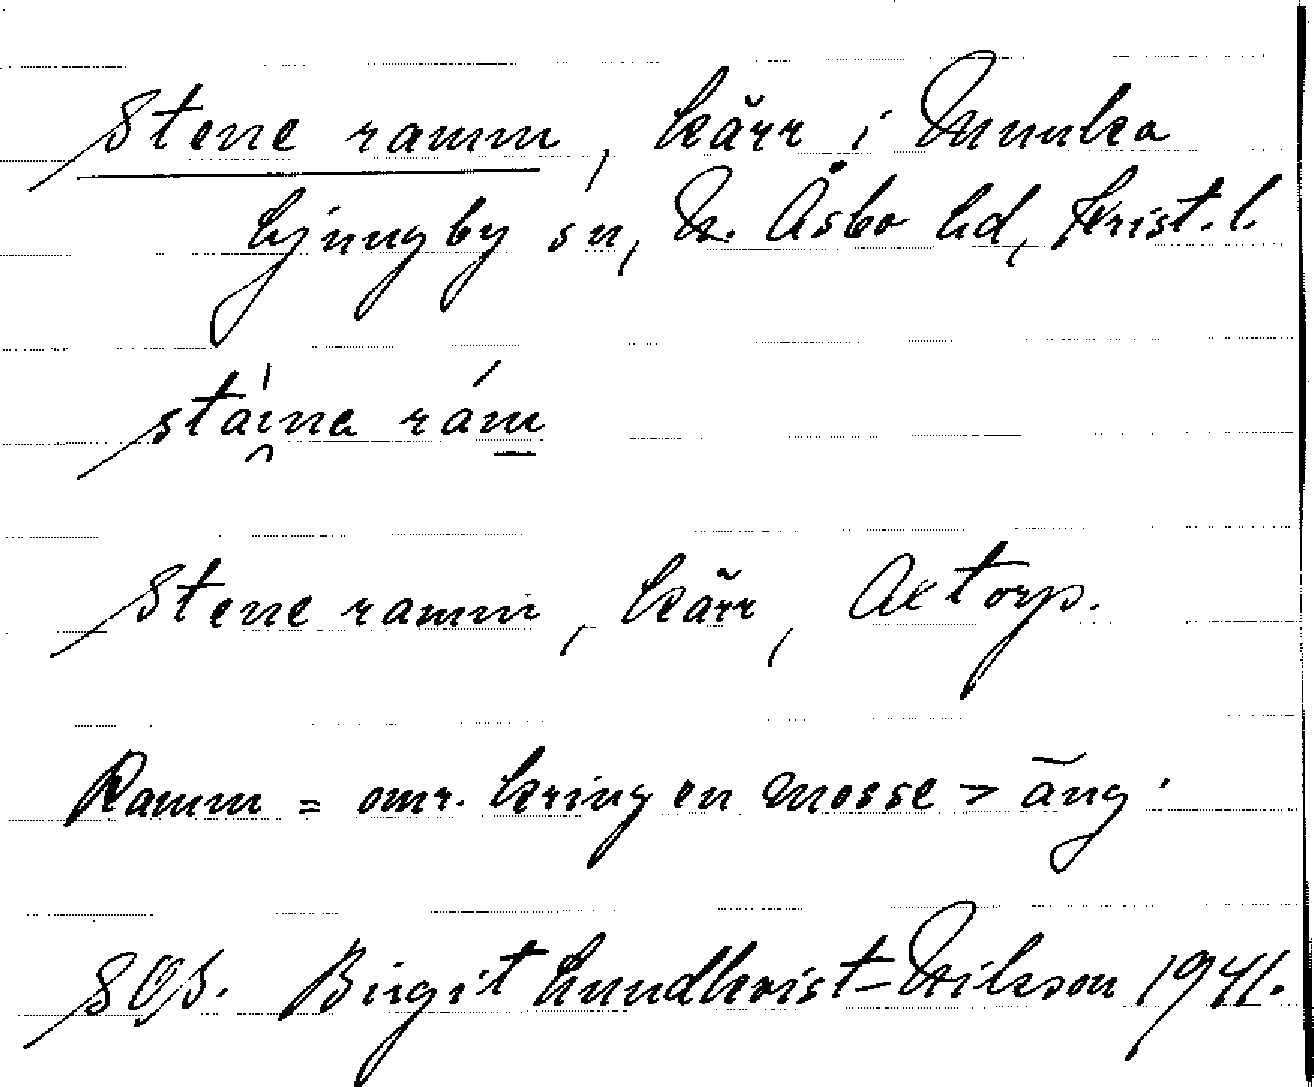 Stene ramm, kärr i Munka
Ljungby sn, N. Åsbo hd, Krist. l.
stái̯na rám̲
Stene ramm, kärr, Axtorp.
Ramm = omr. kring en mosse > äng.
SOS. Birgit Lundkvist-Nilsson 1941.